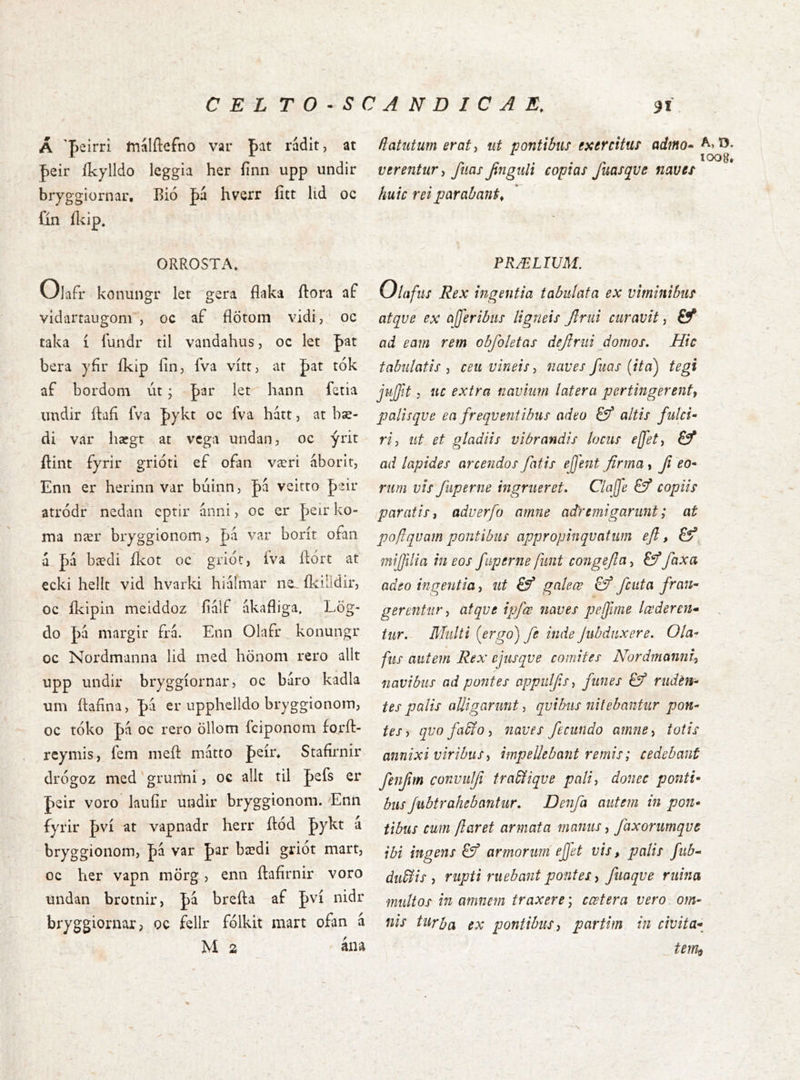 CELTO-SCANDICAE. 91
Á þeirri málſtefno var þat rádit, at
þeir ſkylldo leggia her ſinn upp undir
bryggiornar. Bió þá hverr ſitt lid oc
ſín ſkip.
ORROSTA.
Olafr konungr let gera flaka ſtora af
vidartaugom, oc af flötom vidi, oc
taka í ſundr til vandahus, oc let þat
bera yfir ſkip ſin, ſva vítt, at þat tók
af bordom út; þar let hann ſetia
undir ſtafi ſva þykt oc ſva hátt, at bæ-
di var hægt at vega undan, oc ýrit
ſtint fyrir grióti ef ofan væri áborit,
Enn er herinn var búinn, þá veitto þeir
atródr nedan eptir ánni, oc er þeir ko-
ma nær bryggionom, þá var borít ofan
á þá bædi ſkot oc griót, ſva ſtórt at
ecki hellt vid hvarki hiálmar ne ſkilldir,
oc ſkipin meiddoz ſiálf ákafliga. Lög-
do þá margir frá. Enn Olafr konungr
oc Nordmanna lid med hönom rero allt
upp undir bryggíornar, oc báro kadla
um ſtafina, þá er upphelldo bryggionom,
oc tóko þá oc rero öllom ſciponom forſt-
reymis, ſem meſt mátto þeír. Stafirnir
drógoz med grunni, oc allt til þeſs er
þeir voro lauſir undir bryggionom. Enn
fyrir því at vapnadr herr ſtód þykt á
bryggionom, þá var þar bædi griót mart,
oc her vapn mörg, enn ſtafirnir voro
undan brotnir, þá breſta af því nidr
bryggiornar, oc fellr fólkit mart ofan á
M 2 ána
ſtatutum erat, ut pontibus exercitus admo-
verentur, ſuas ſinguli copias ſuasqve naves
huic rei parabant.
A, D.
1008.
PRÆLIUM.
Olafus Rex ingentia tabulata ex viminibus
atqve ex aſſeribus ligneis ſtrui curavit, &
ad eam rem obſoletas deſtrui domos. Hic
tabulatis, ceu vineis, naves ſuas (ita) tegi
juſſit, uc extra navium latera pertingerent,
palisqve ea freqventibus adeo & altis fulci-
ri, ut et gladiis vibrandis locus eſſet, &
ad lapides arcendos ſatis eſſent firma, ſi eo-
rum vis ſuperne ingrueret. Claſſe & copiis
paratis, adverſo amne adremigarunt; at
poſtqvam pontibus appropinqvatum eſt, &
miſſilia in eos ſuperne ſunt congeſta, & ſaxa
adeo ingentia, ut & galeæ & ſcuta fran-
gerentur, atqve ipſæ naves peſſime læderen-
tur. Multi (ergo) ſe inde ſubduxere. Ola-
fus autem Rex ejusqve comites Nordmanni,
navibus ad pontes appulſis, funes & ruden-
tes palis alligarunt, qvibus nitebantur pon-
tes, qvo facto, naves ſecundo amne, totis
annixi viribus, impellebant remis; cedebant
ſenſim convulſi tractiqve pali, donec ponti-
bus ſubtrahebantur. Denſa autem in pon-
tibus cum ſtaret armata manus, ſaxorumqve
ibi ingens & armorum eſſet vis, palis ſub-
ductis, rupti ruebant pontes, ſuaqve ruina
multos in amnem traxere; cætera vero om-
nis turba ex pontibus, partim in civita-
tem,